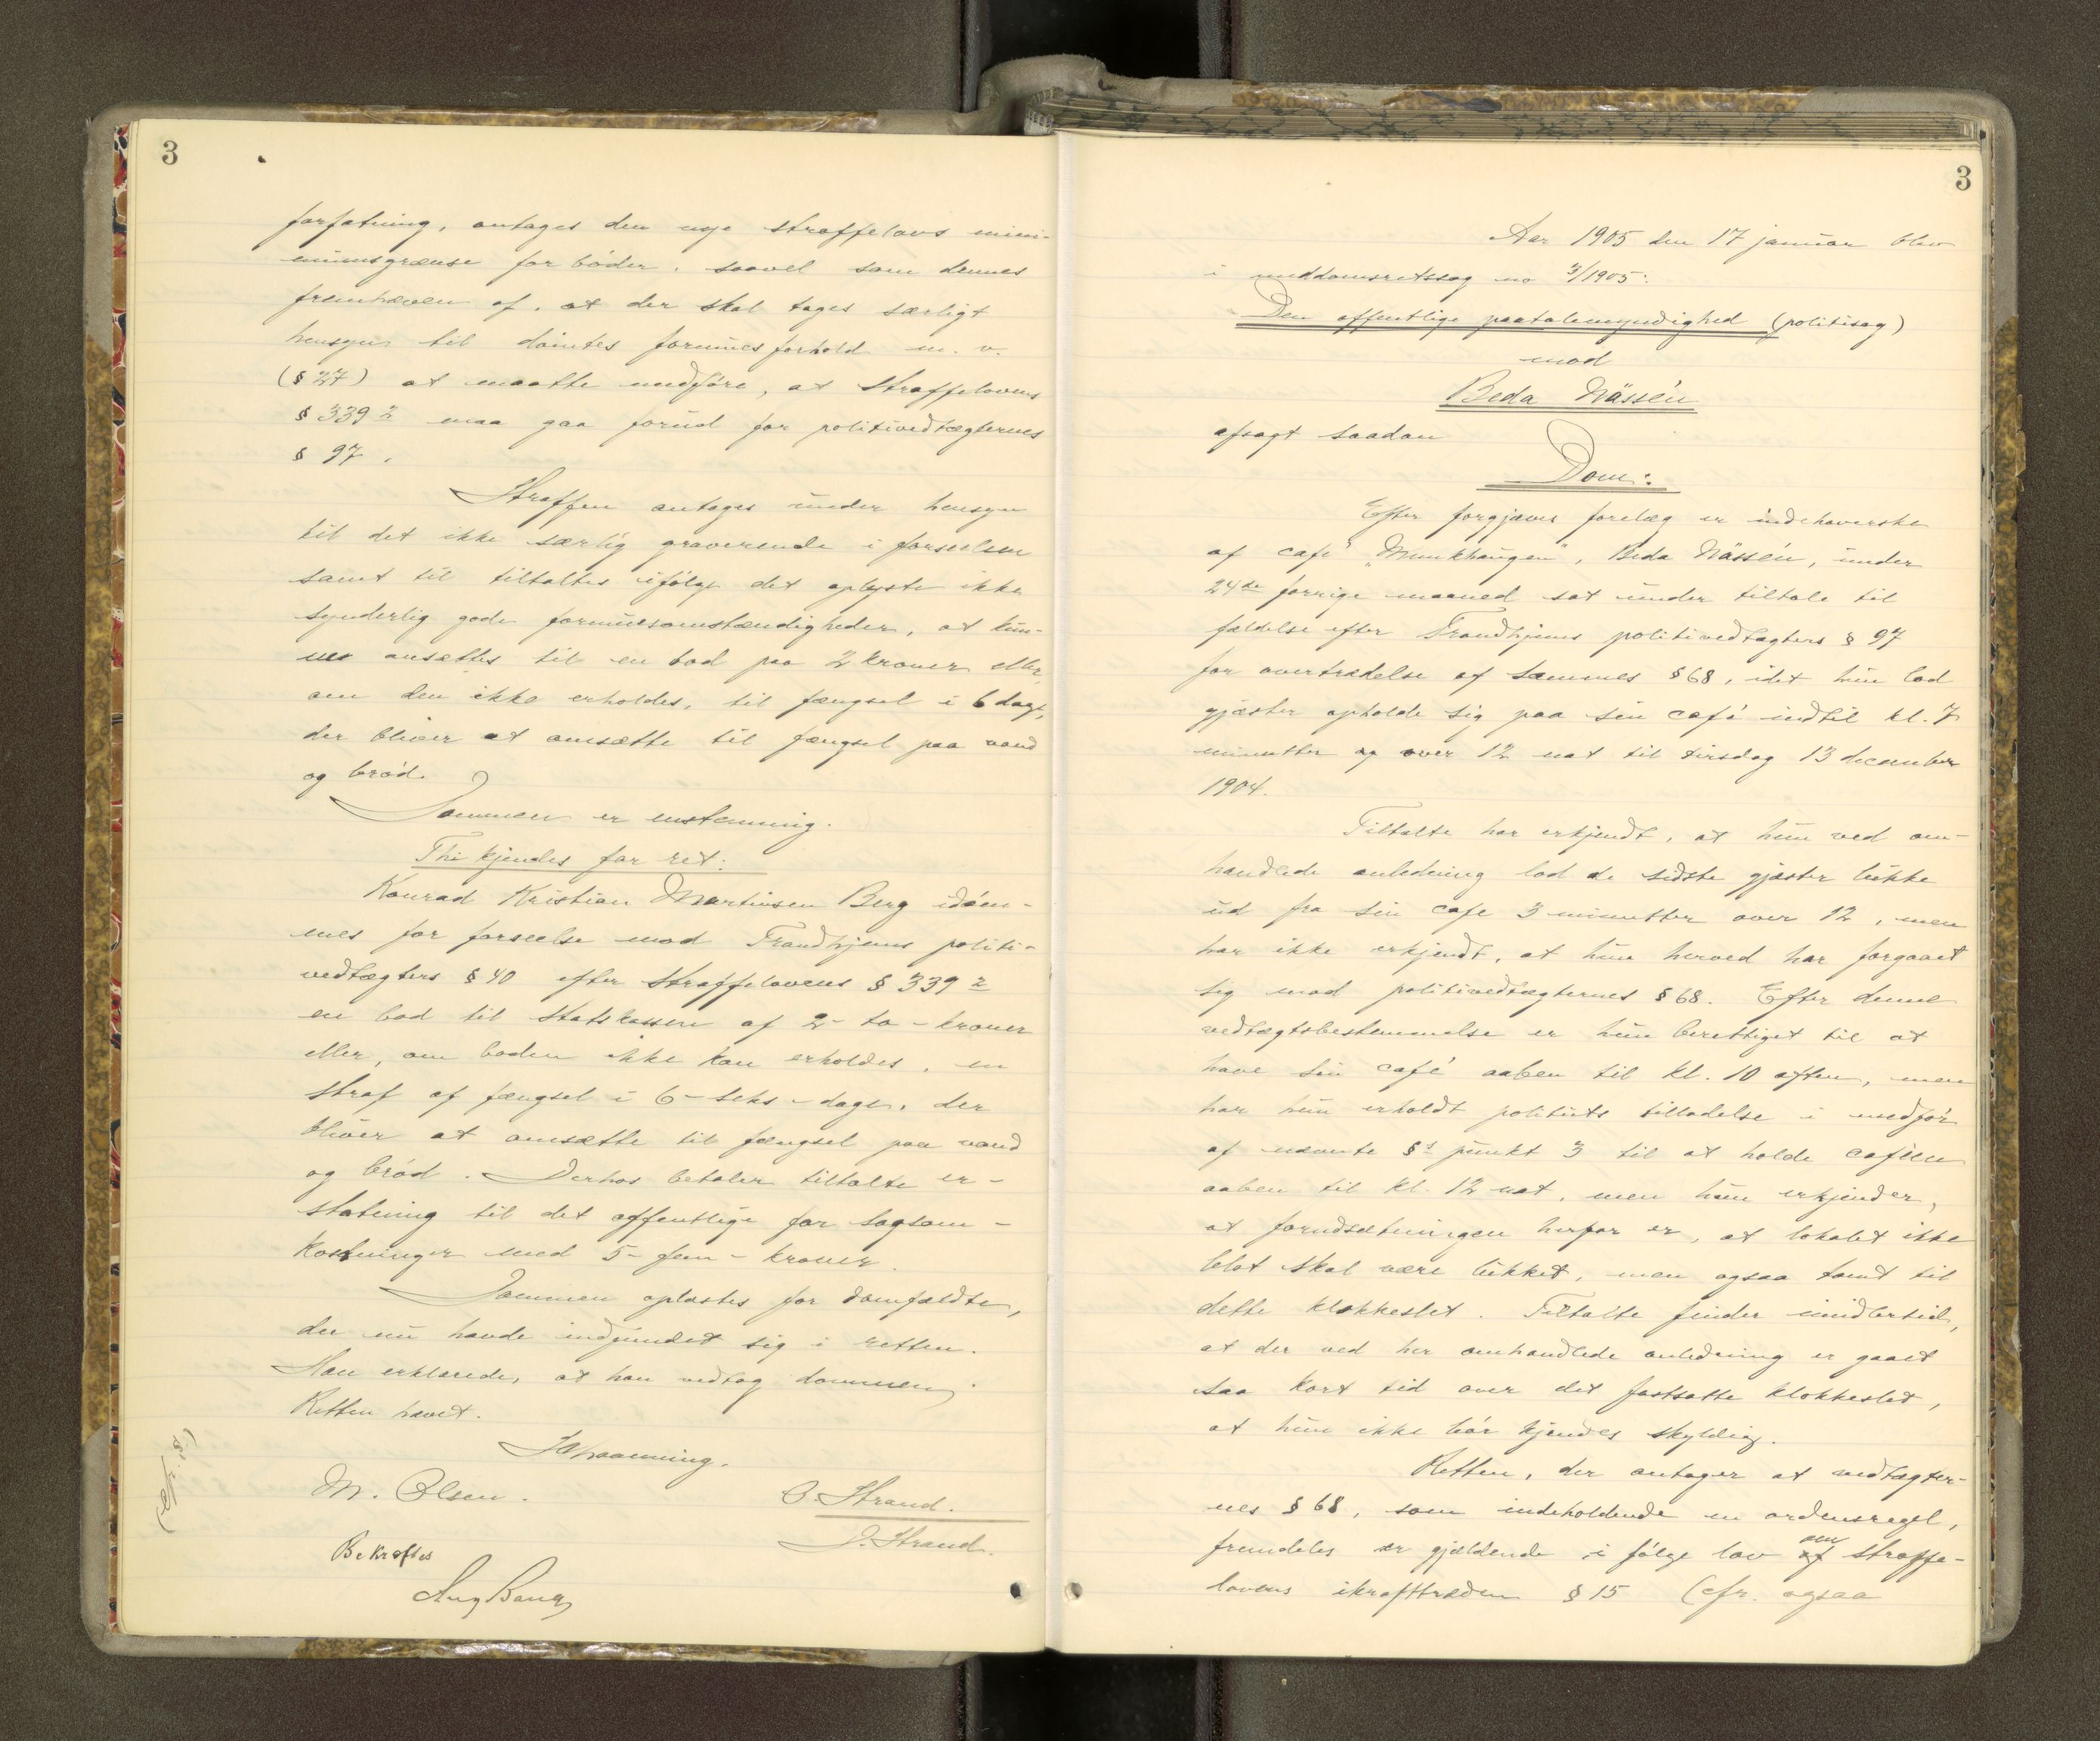 3
forfatning, antages den nye straffelovs mini-
mumsgrænse for bøder, saavel som dennes
fremhæven af, at der skal tages særligt
hensyn til dömtes formuesforhold m. v.
(§ 27) at maatte medføre, at straffelovens
§ 339 2 maa gaa forud for politivedtægternes
§ 97.
Straffen antages under hensyn
til det ikke særlig graverende i forseelsen
samt til tiltaltes ifölge det oplyste ikke
synderlig gode formuesomstændigheder, at kun-
ne ansættes til en bod paa 2 kroner eller,
om den ikke erholdes, til fængsel i 6 dage,
der bliver at omsætte til fængsel paa vand
og bröd.
Dommen er enstemmig.
Thi kjendes for ret:
Konrad Kristian Martinsen Berg idöm-
mes for forseelse mod Trondhjems politi-
vedtægters § 40 efter straffelovens § 339 2
en bod til statskassen af 2 - to - kroner
eller, om boden ikke kan erholdes, en
straf af fængsel i 6 - seks - dage, der
bliver at omsætte til fængsel paa vand
og bröd. Derhos betaler tiltalte er-
statning til det offentlige for sagsom-
kostninger med 5 - fem - kroner.
Dommen oplæstes for domfældte,
der nu havde indfundet sig i retten.
Han erklærede, at han vedtog dommen.
Retten hævet.
M. Olsen.
O. Strand.
J. Strand.
Bekræftes
Aug Bang
3
Aar 1905 den 17 januar blev
i meddomsretssag no 3/1905:
Den offentlige paatalemyndighed (politisag)
mod
Beda Nässén
afsagt saadan
Dom:
Efter forgjæves forelæg er indehaverske
af café "Munkhaugen", Beda Nässén, under
24de forrige maaned sat under tiltale til
fældelse efter Trondhjems politivedtægters § 97
for overtrædelse af sammes § 68, idet hun lod
gjæster opholde sig paa sin café indtil kl. 7
minutter over 12 nat til tirsdag 13 december
1904.
Tiltalte har erkjendt, at hun ved om-
handlede anledning lod de sidste gjæster lukke
ud fra sin cafe 3 minutter over 12, men
har ikke erkjendt, at hun herved har forgaaet
sig mod politivedtægternes § 68. Efter denne
vedtægtsbestemmelse er hun berettiget til at
have sin café aaben til kl. 10 aften, men
har hun erholdt politiets tilladelse i medför
af nævnte §s punkt 3 til at holde caféen
aaben til kl. 12 nat, men hun erkjender,
at forudsætningen herfor er, at lokalet ikke
blot skal være lukket, men ogsaa tomt til
dette klokkeslet. Tiltalte finder imidlertid,
at der ved her omhandlede anledning er gaaet
saa kort tid over det fastsatte klokkeslet,
at hun ikke bör kjendes skyldig.
Retten, der antager at vedtægter-
nes § 68, som indeholdende en ordensregel,
fremdeles er gjældende i følge lov om straffe-
lovens ikrafttræden § 15 (cfr. ogsaa